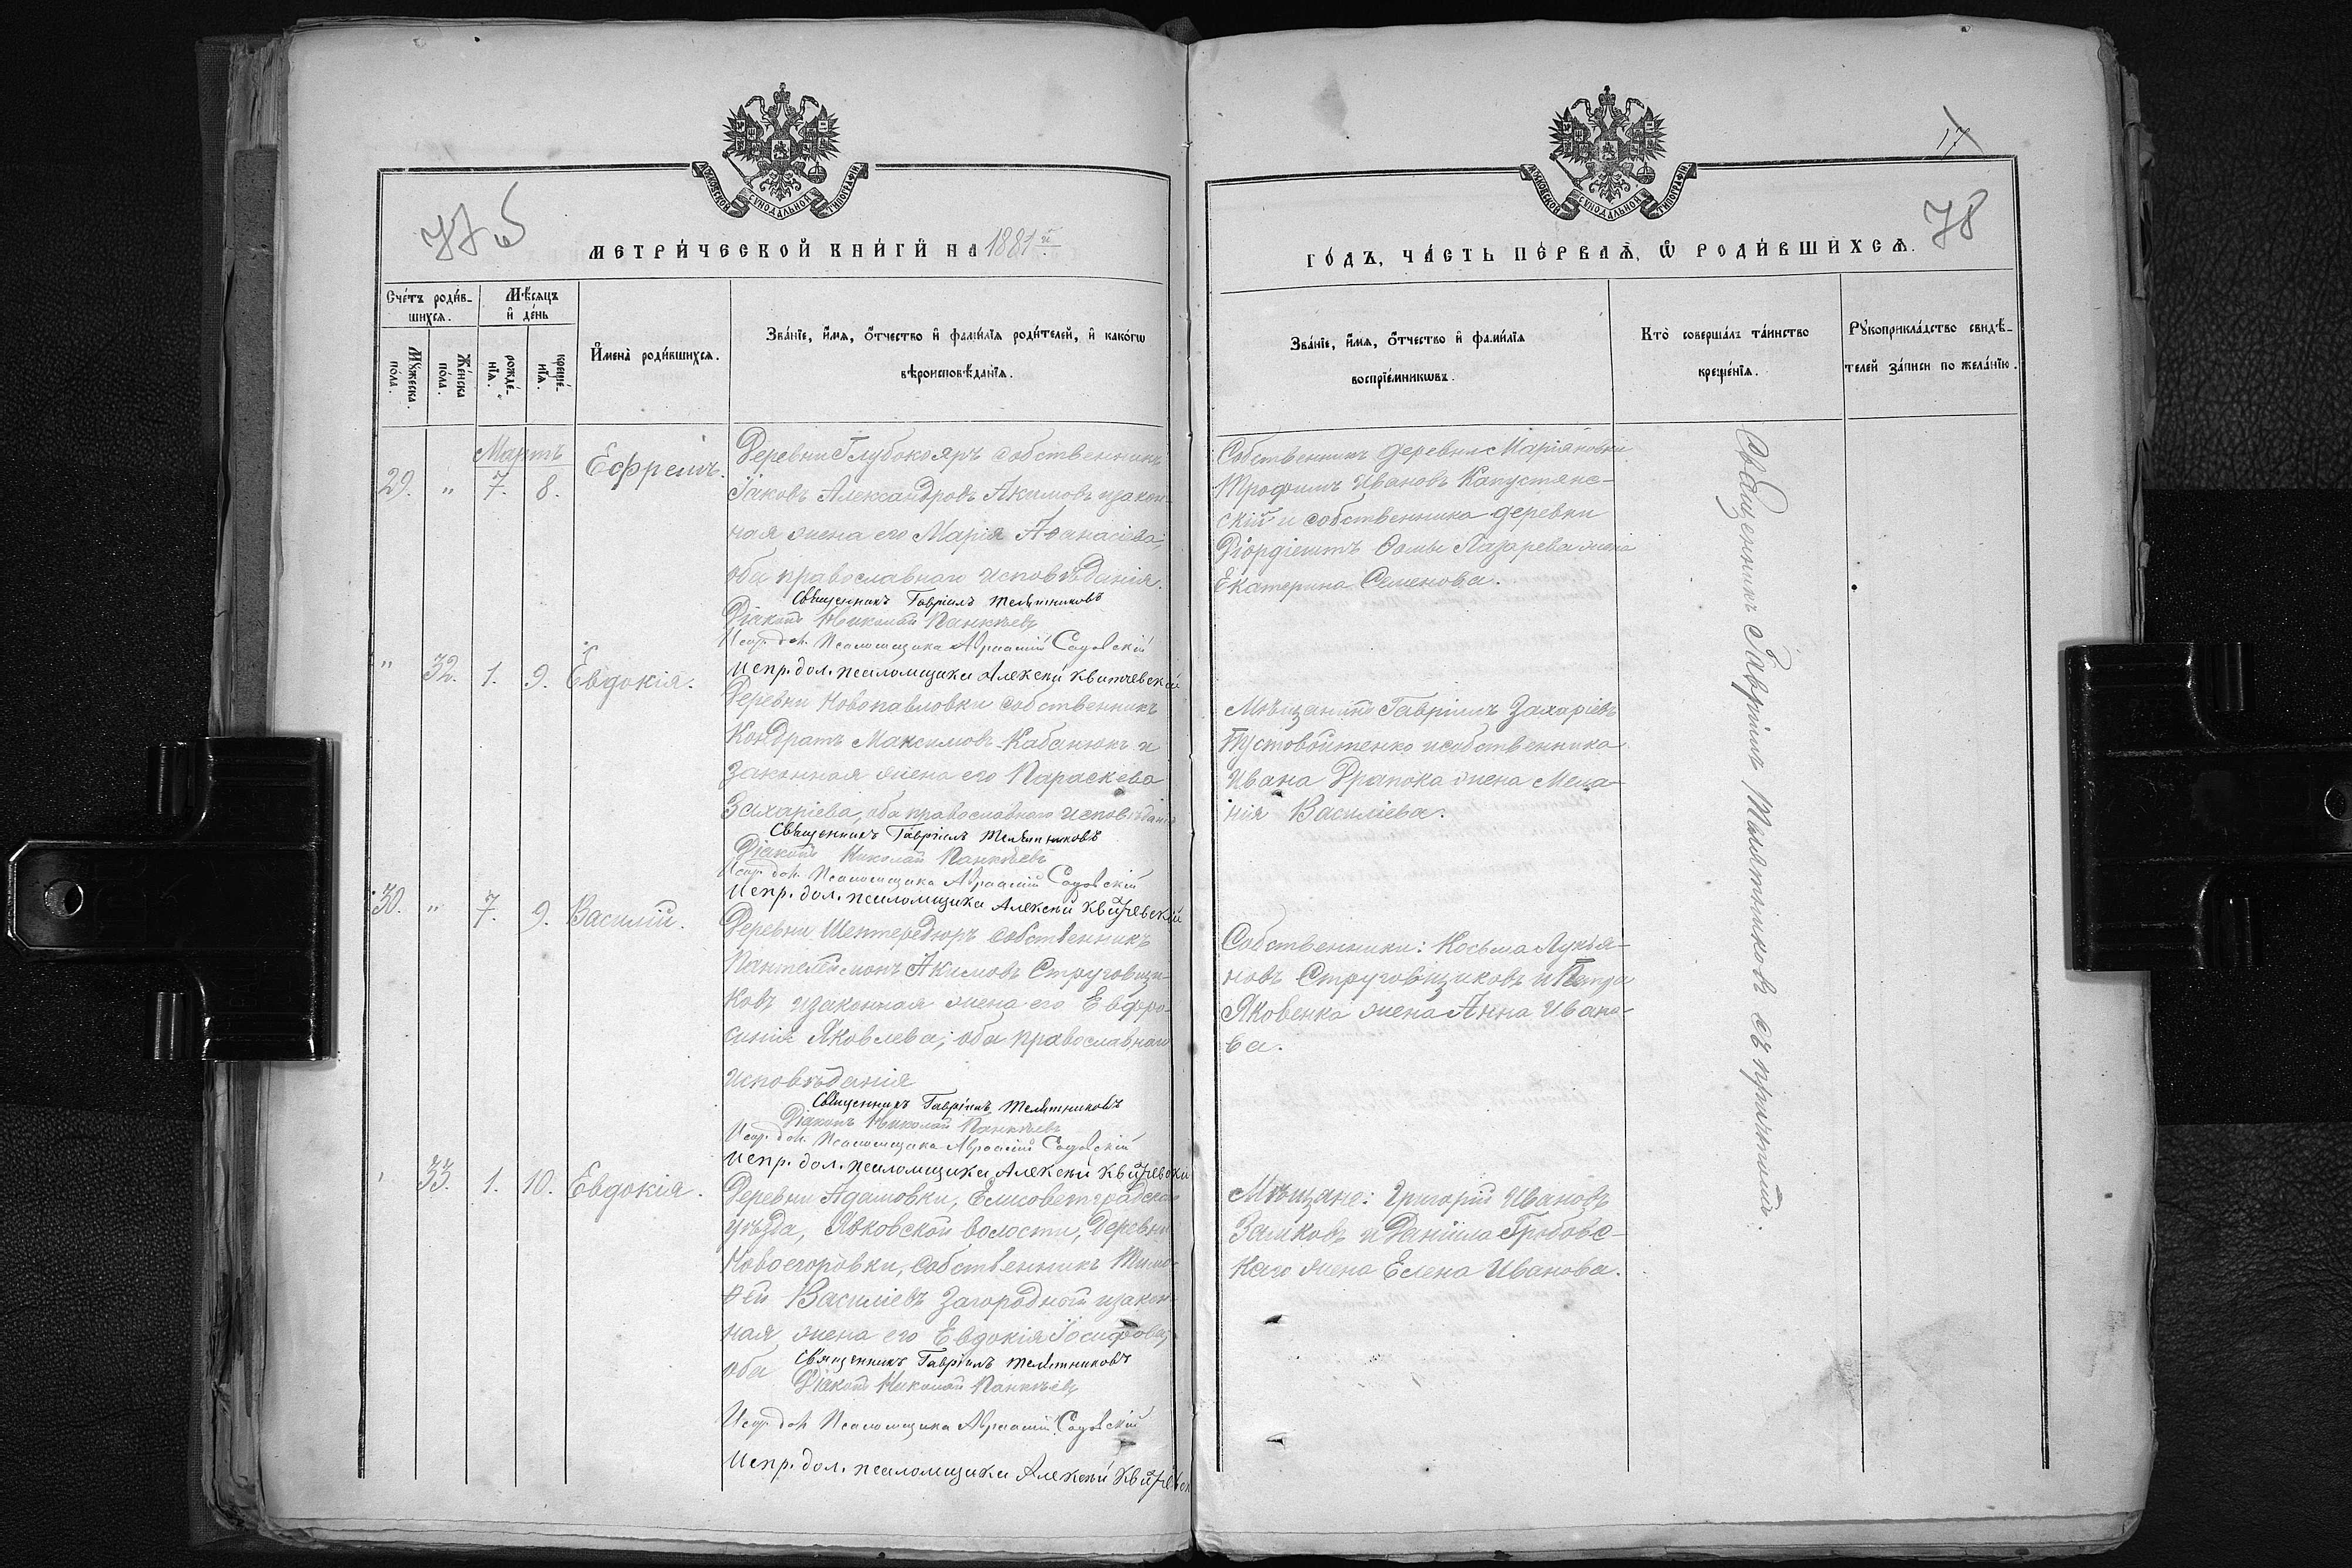 77 об
МОСКОВСКОЙ СѴНОДАЛЬНОЙ ТИПОГРАФІИ
МЕТРИ́ЧЕСКОЙ КНИ́ГИ НА 1881 й
Сче́тъ роди́в-
шихсѧ.
Мѣ́сѧцъ
и҆ де́нь
Мꙋ́жеска
по́ла.
Же́нска
по́ла.
рожде́-
нїѧ.
креще́-
нїѧ.
И҆мена̀ роди́вшихсѧ.
Зва́нїе, и҆́мѧ, ѻ҆́тчество и҆ фами́лїѧ роди́телей, и҆ како́гѡ
вѣроисповѣ́данїѧ.
Мартъ
29. " 7. 8. Ефремъ.
Деревни Глубокояръ собственникъ
Іаковъ Александровъ Акимовъ и закон-
ная жена его Марія Аѳанасіева,
оба православнаго исповѣданія.
Священникъ Гавріилъ Телятниковъ
Діаконъ Николай Панкѣевъ
Испр. дол. Псаломщика Авраамій Садовскій
Испр. дол. псаломщика Алексѣй Квитчевскій
" 32. 1. 9. Евдокія.
Деревни Новопавловки собственникъ
Кондратъ Максимовъ Кабанюкъ и
законная жена его Параскева
Захаріева, оба православнаго исповѣданія
Священникъ Гавріилъ Телятниковъ
Діаконъ Николай Панкѣевъ
Испр. дол. Псаломщика Авраамій Садовскій
Испр. дол. псаломщика Алексѣй Квитчевскій
30. " 7. 9. Василій.
Деревни Шентередюръ собственникъ
Пантелеймонъ Акимовъ Струговщи-
ковъ и законная жена его Евфро-
синія Яковлева; оба православнаго
исповѣданія
Священникъ Гавріилъ Телятниковъ
Діаконъ Николай Панкѣевъ
Испр. дол. Псаломщика Авраамій Садовскій
Испр. дол. псаломщика Алексѣй Квитчевскій
33. 1. 10. Евдокія.
Деревни Адамовки, Елисоветградскаго
уѣзда, Явковской волости, деревни
Новоегоровки, собственникъ Тимо-
ѳей Василіевъ Загородной и закон-
ная жена его Евдокія Іосифова,
оба
Священникъ Гавріилъ Телятниковъ
Діаконъ Николай Панкѣевъ
Испр. дол. Псаломщика Авраамій Садовскій
Испр. дол. псаломщика Алексѣй Квитчевскій
17
78
МОСКОВСКОЙ СѴНОДАЛЬНОЙ ТИПОГРАФІИ
ГО́ДЪ, ЧА́СТЬ ПЕ́РВАѦ, Ѡ҆ РОДИ́ВШИХСѦ.
Зва́нїе, и҆́мѧ, ѻ҆́тчество и҆ фами́лїѧ
воспрїе́мникѡвъ.
Кто̀ соверша́лъ та́инство
креще́нїѧ.
Рꙋкоприкла́дство свидѣ́-
телей за́писи по жела́нїю.
Собственникъ деревни Маріяновки
Трофимъ Ивановъ Капустянс-
скій и собственника деревни
Ѳомы Лазарева жена
Екатерина Семенова.
Мѣщанинъ Гавріилъ Захаріевъ
Пустовойтенко и собственника
Ивана Драпока жена Мела-
нія Василіева.
Собственники: Косьма Лукья-
новъ Струговщиковъ и
Яковенка жена Анна Ивано-
ва.
Мѣщане: Григорій Ивановъ
Замковъ и Даніила Гробовс-
каго жена Елена Иванова.
Священникъ Гавріилъ Телятниковъ съ причтомъ.